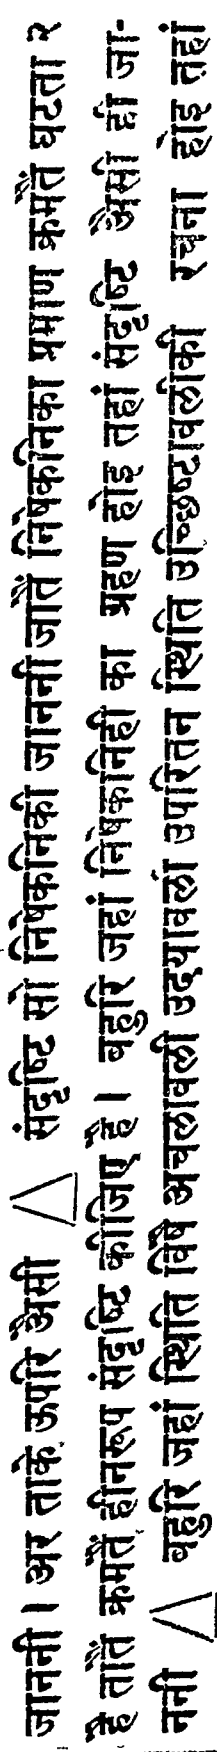 जाननी । अर ताके ऊपरि अैसी △ संदृष्टि सो निषेकनिकी जाननी जातैं निषेकनिका प्रमाण क्रमतैं घटता २
है तातैं क्रमतैं हीनरूप संदृष्टि कीजिए है । बहुरि जहां निषेकनिही का ग्रहण होइ तहां संदृष्टि अैसी ही जा-
ननी △ बहुरि जहां स्थिति विषै अचलावली उदयावली उपरितन स्थिति उच्छिष्टावलीकी रचना होइ तहां